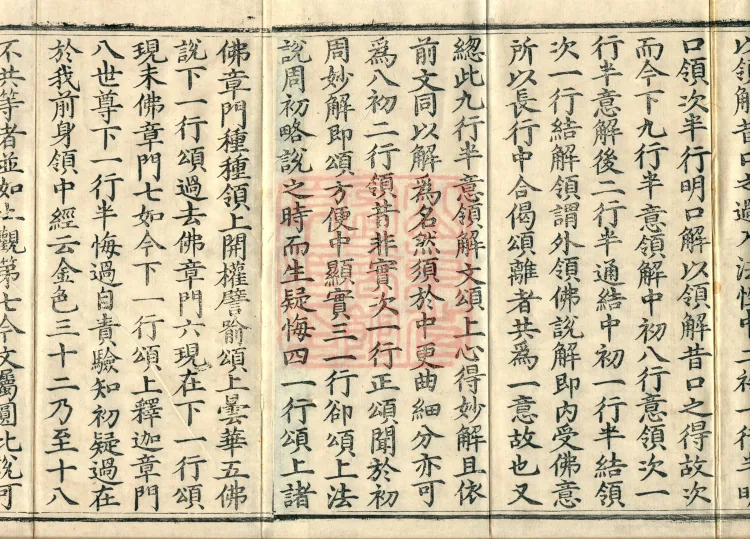 口領次半行明口解以領解昔口之得故次
而今下九行半意領解中初八行意領次一
行半意解後二行半通結中初一行半結領
次一行結解領謂外領佛說解即內受佛意
所以長行中合偈頌離者共為一意故也又
總此九行半意領解文頌上心得妙解且依
前文同以解為名然須於中更曲細分亦可
為八初二行領昔非實次一行正頌聞於初
周妙解即頌方便中顯實三一行卻頌上法
說周初略說之時而生疑悔四一行頌上諸
佛章門種種領上開權譬喻頌上曇華五佛
說下一行頌過去佛章門六現在下一行頌
現未佛章門七如今下一行頌上釋迦章門
八世尊下一行半悔過自責驗知初疑過在
於我前身領中經云金色三十二乃至十八
不共等者並如止觀第七今文屬圓比說可